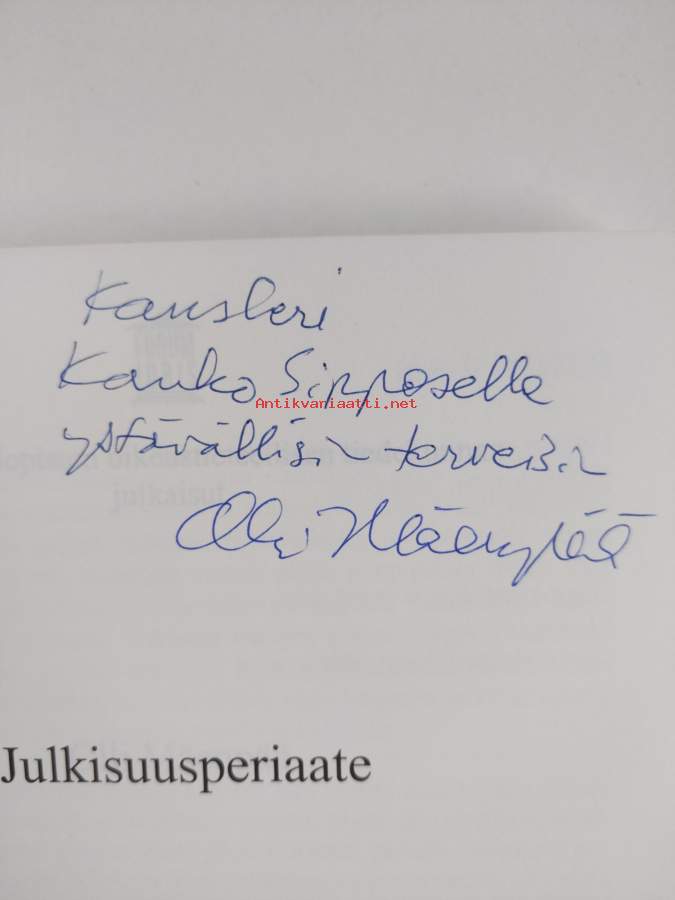 Kansleri
Kauko Sipposelle
Antikvariaatti.net
ystävällisin terveisin
Olli Mäenpää
julkaisut
Julkisuusperiaate